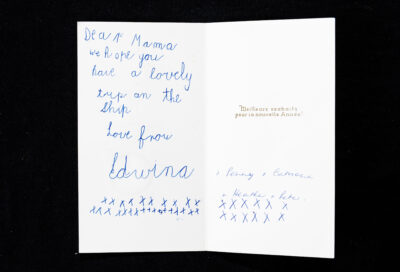 Dear Mama
we hope you
have a lovely
trip on the
ship
love from
Edwina
xx x x xx xx xx
xx xx xxxx+++xx xx xx
"Meilleurs souhaits
pour la nouvelle Année"
+ Penny +
+ Heather +
X X X X X X
X X X X X X